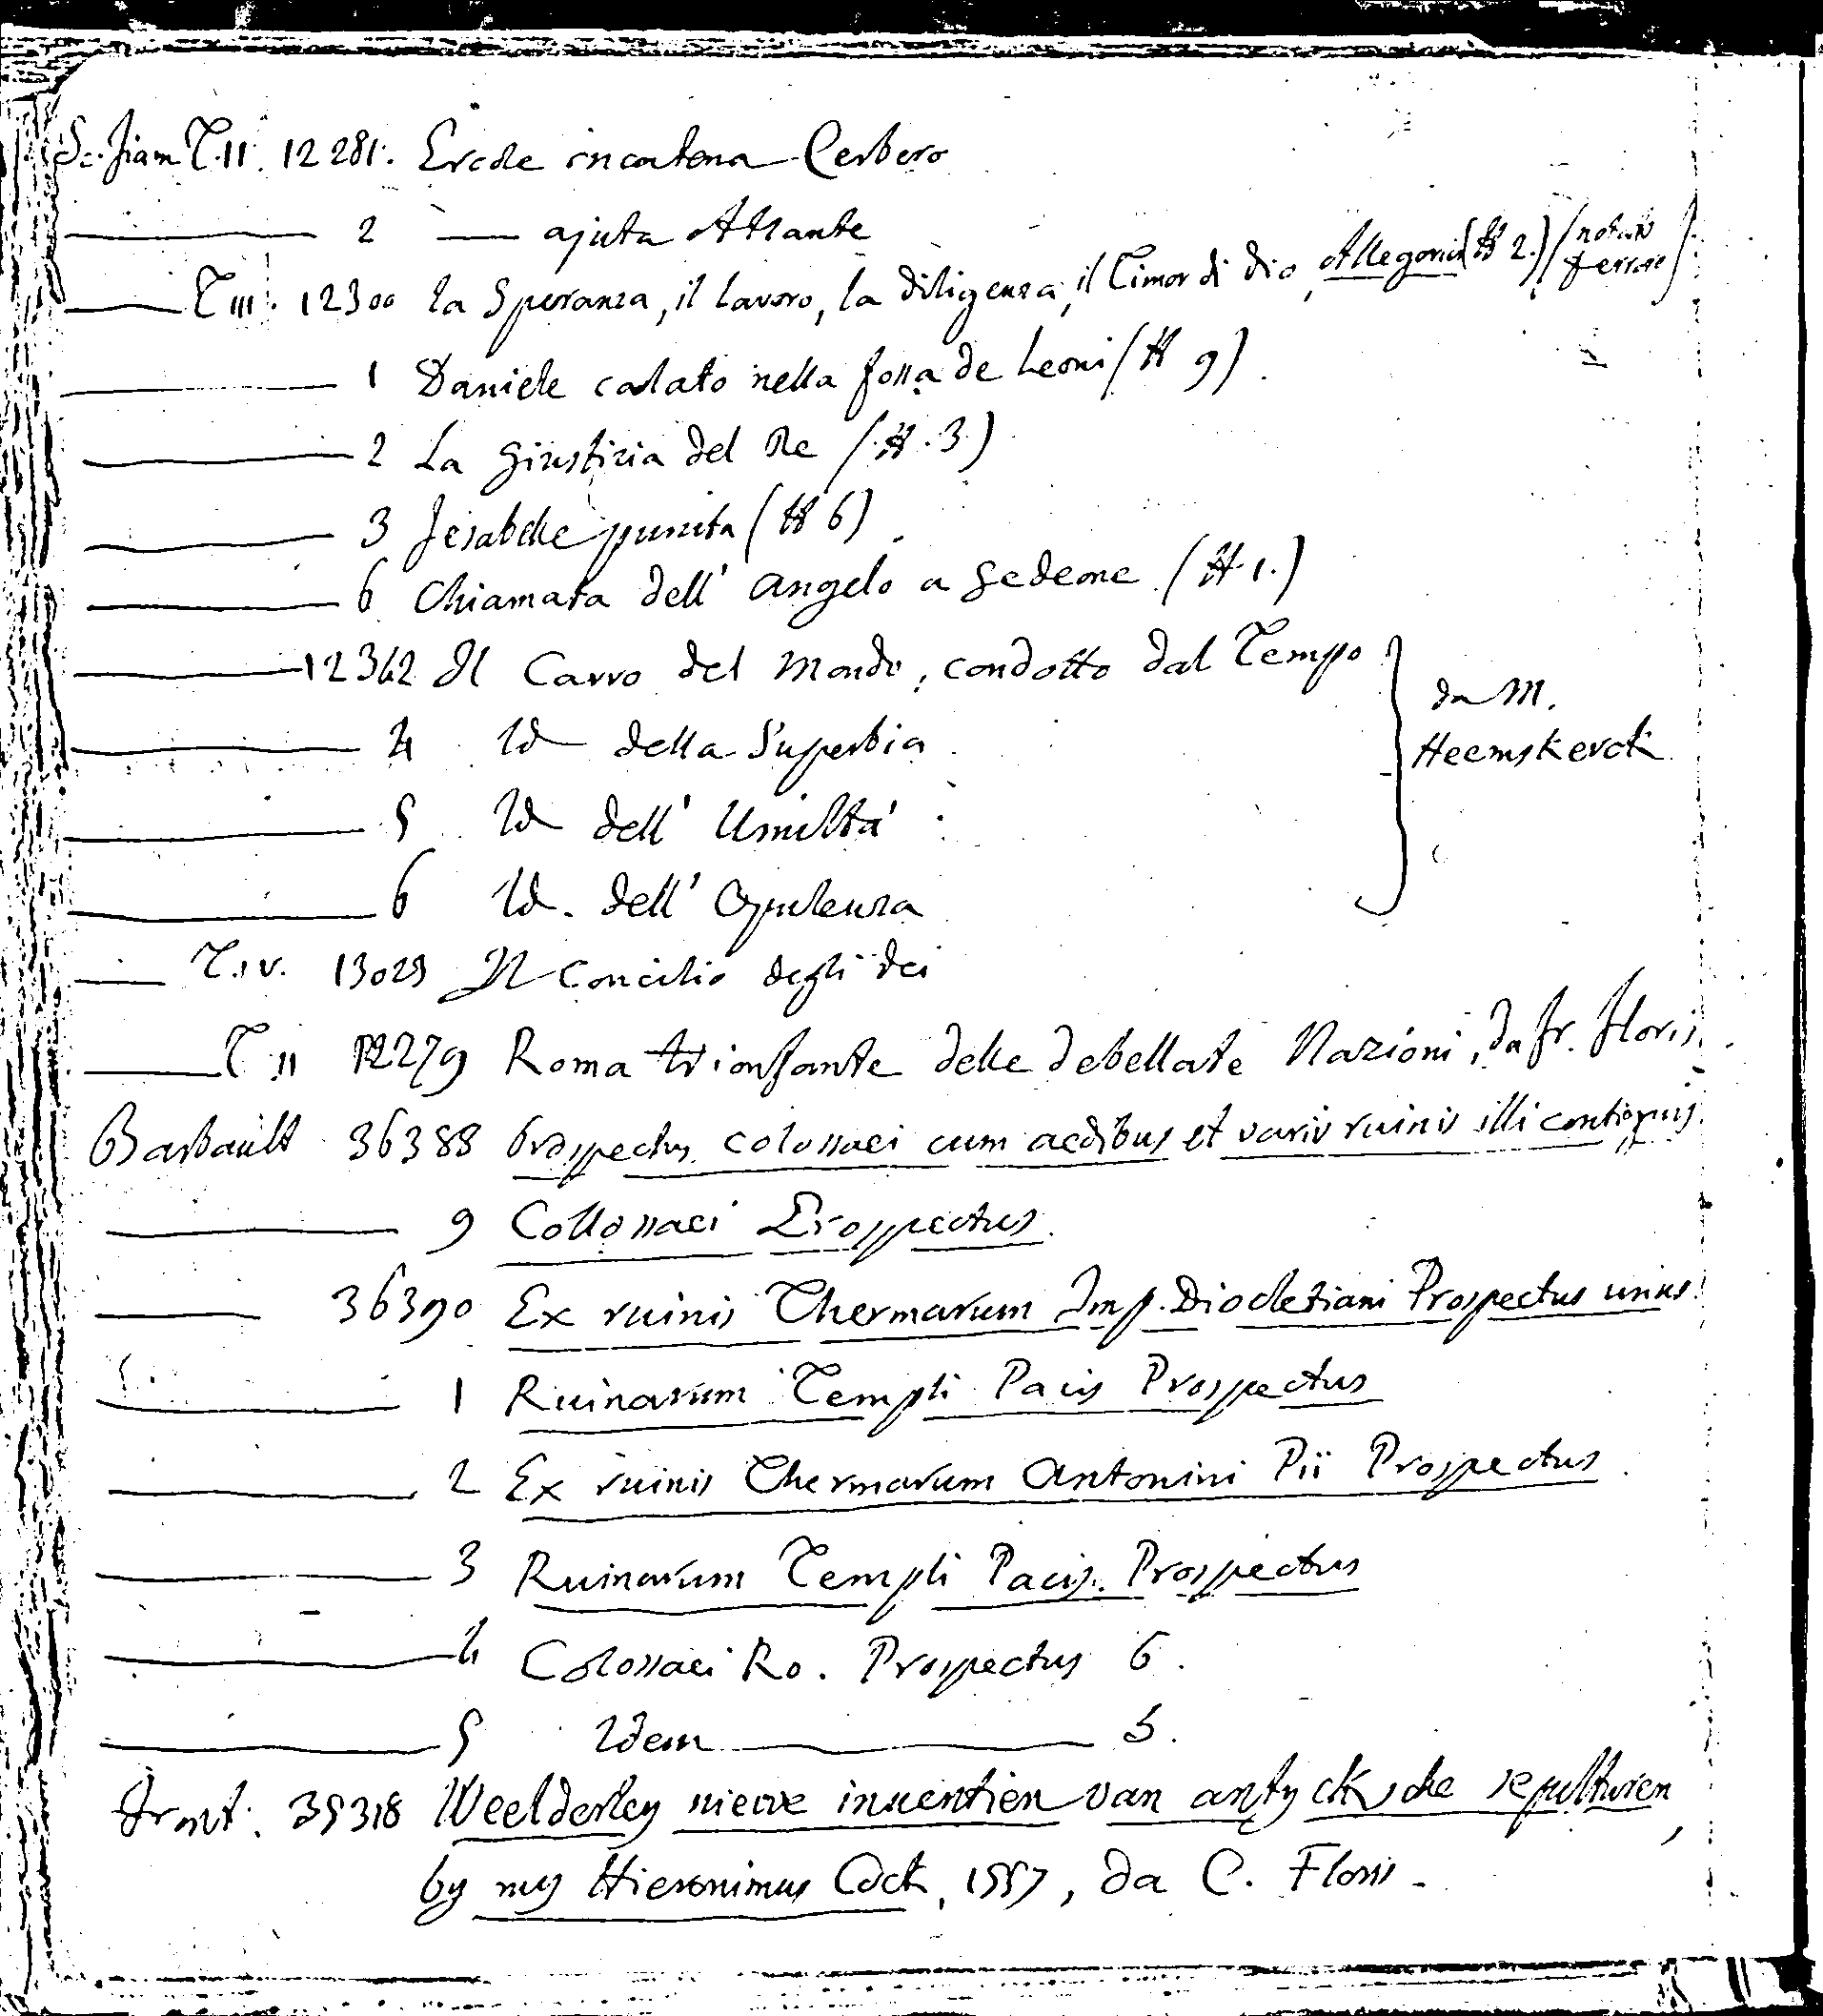 Sc. fiam T. II. 12281. Ercole incatena Cerbero
2 — ajuta Atlante
T III. 12300 la Speranza, il lavoro, la diligenza, il Timor di dio, Allegoria (H 2.) (notato ferrore)
1 Daniele calato nella fossa de Leoni (H 9).
2 La giustizia del Re (H. 3)
3 Jesabelle punita (H 6)
6 Chiamata dell' angelo a gedeone (H. 1.)
12362 Il Carro del Mondo, condotto dal Tempo
4 Id della Superbia
da M. Heemskerck
5 Id dell' Umiltá
6 Id. dell' Opulenza
T. IV. 13029 Il Concilio degli dei
T. II 12279 Roma trionfante delle debellate Nazioni, da fr. floris.
Barbault 36388 Prospectus colossaei cum aedibus et variis ruinis illi contiguis.
9 Collossaei Prospectus.
36390 Ex ruinis Thermarum Imp. Diocletiani Prospectus unius.
1 Ruinarum Templi Pacis Prospectus
2 Ex ruinis Thermarum Antonini Pii Prospectus.
3 Ruinarum Templi Pacis. Prospectus
4 Colossaei Ro. Prospectus 6.
5 Idem — 5.
39318 Weelderley nieuve inuentien van antyckshe sepultuien,
by my Hieronimus Cock, 1557, da C. Floris.